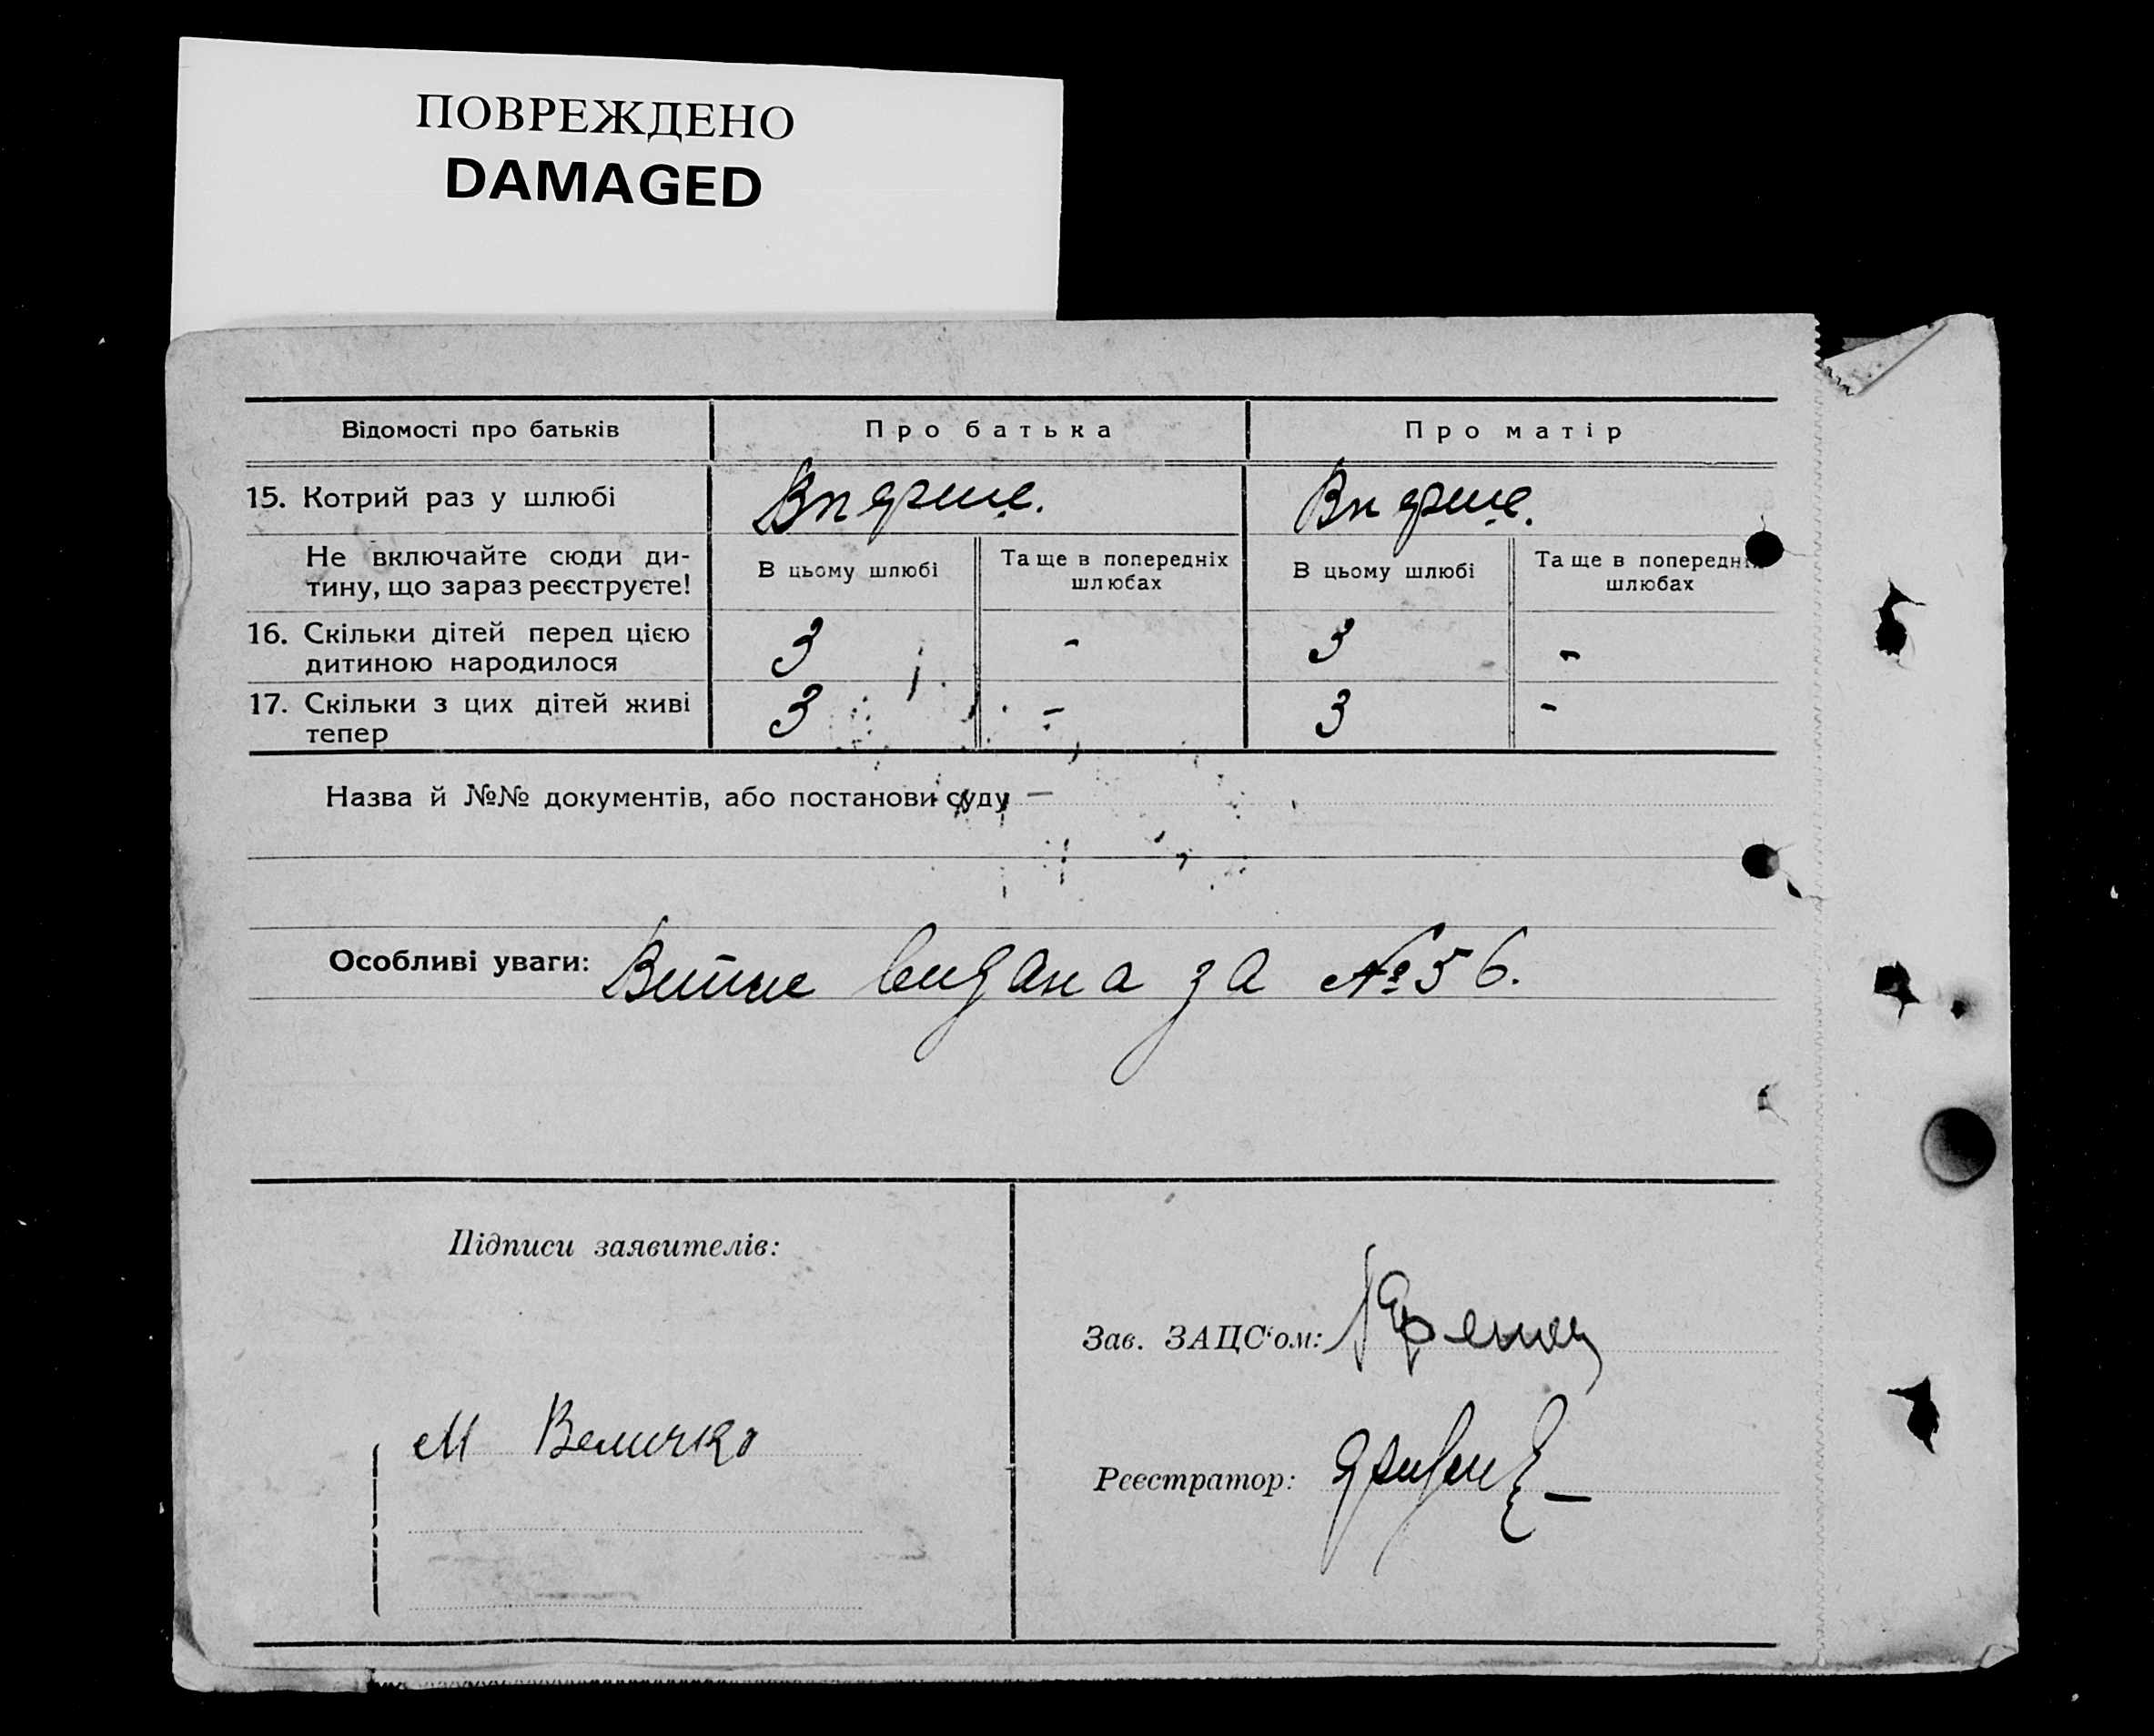 ПОВРЕЖДЕНО
DAMAGED
Відомості про батьків Про батька Про матір
15. Котрий раз у шлюбі Вперше. Вперше.
Не включайте сюди ди-
тину, що зараз реєструєте!
В цьому шлюбі Та ще в попередніх шлюбах В цьому шлюбі Та ще в попередніх шлюбах
16. Скільки дітей перед цією 3 - 3 -
дитиною народилося
17. Скільки з цих дітей живі 3 - 3 -
тепер
Назва й №№ документів, або постанови суду —
Особливі уваги: видана за №56.
Підписи заявителів:
Зав. ЗАЦС'ом:
М Величко
Реєстратор: